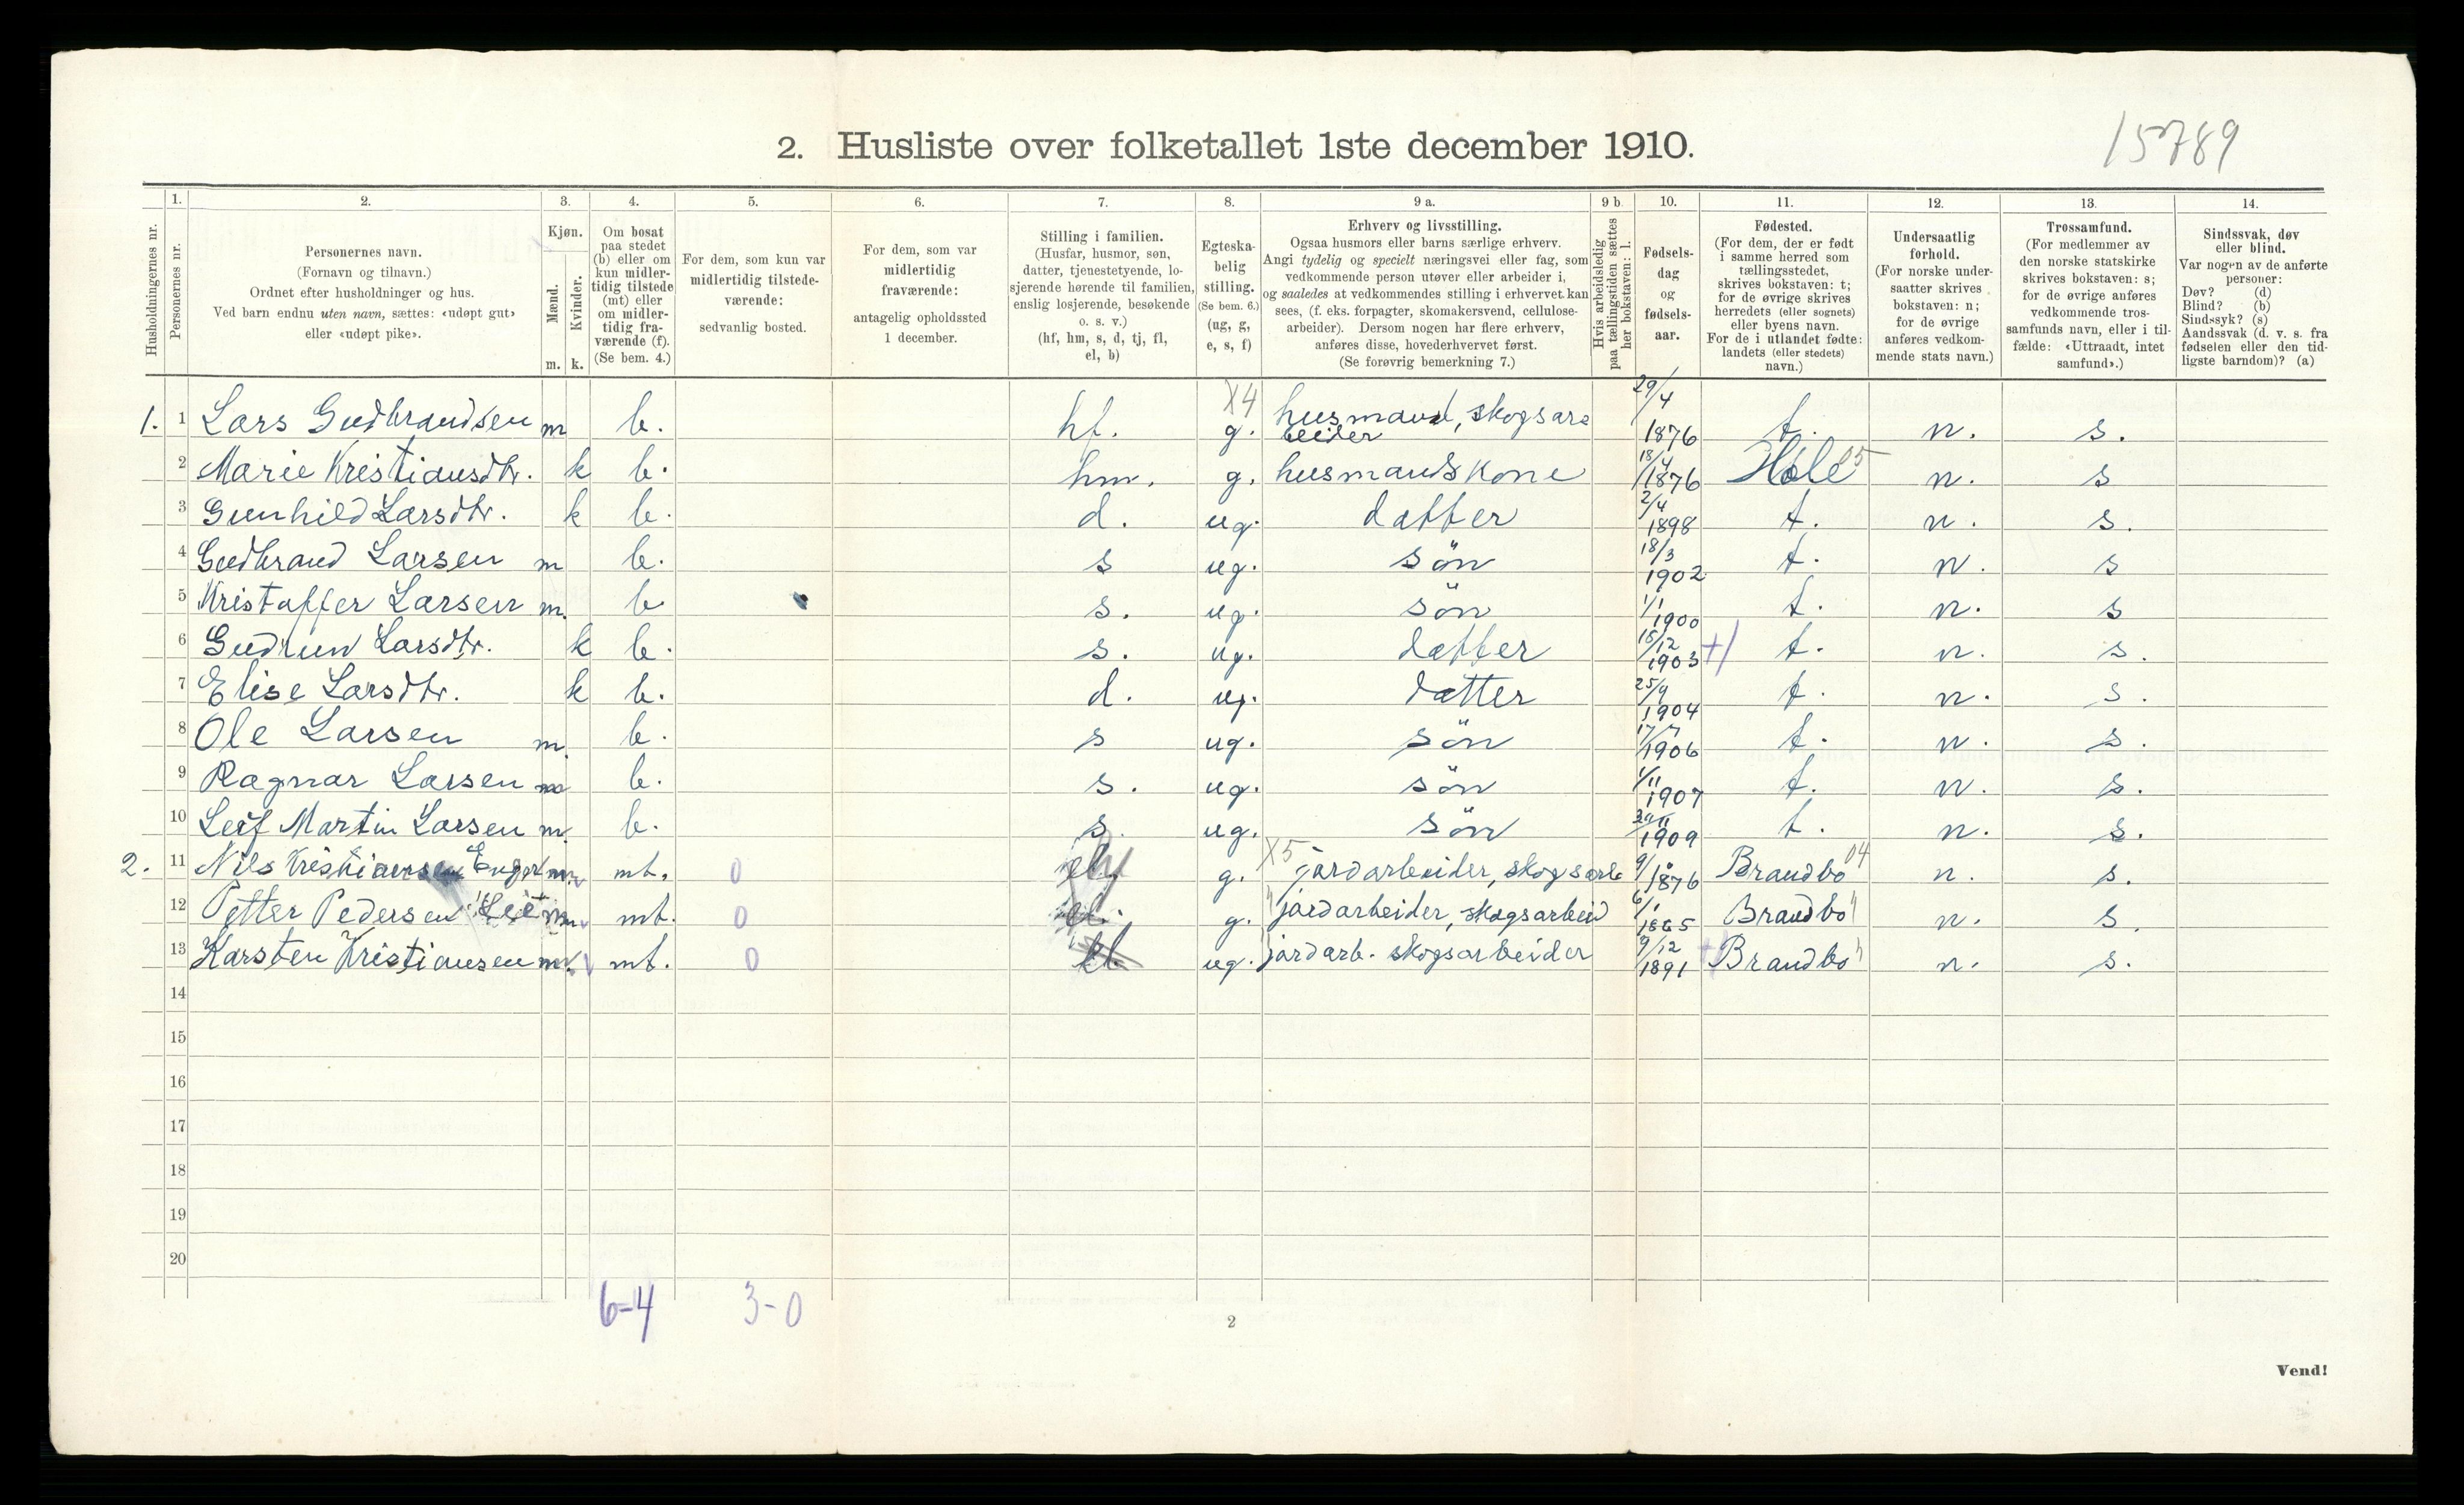 15789
2. Husliste over folketallet 1ste december 1910.
1. 2. 3. 4. 5. 6. 7. 8. 9 a. 9 b. 10. 11. 12. 13. 14.
Husholdningernes nr.
Personernes nr.
Personernes navn.
(Fornavn og tilnavn.)
Ordnet efter husholdninger og hus.
Ved barn endnu uten navn, sættes: «udøpt gut»
eller «udøpt pike».
Kjøn.
Mænd.
Kvinder.
m. k.
Om bosat
paa stedet
(b) eller om
kun midler-
tidig tilstede
(mt) eller
om midler-
tidig fra-
værende (f).
(Se bem. 4.)
For dem, som kun var
midlertidig tilstede-
værende:
sedvanlig bosted.
For dem, som var
midlertidig
fraværende:
antagelig opholdssted
1 december.
Stilling i familien.
(Husfar, husmor, søn,
datter, tjenestetyende, lo-
sjerende hørende til familien,
enslig losjerende, besøkende
o. s. v.)
(hf, hm, s, d, tj, fl,
el, b)
Egteska-
belig
stilling.
(Se bem. 6.)
(ug, g,
e, s, f)
Erhverv og livsstilling.
Ogsaa husmors eller barns særlige erhverv.
Angi tydelig og specielt næringsvei eller fag, som
vedkommende person utøver eller arbeider i,
og saaledes at vedkommendes stilling i erhvervet kan
sees, (f. eks. forpagter, skomakersvend, cellulose-
arbeider). Dersom nogen har flere erhverv,
anføres disse, hovederhvervet først.
(Se forøvrig bemerkning 7.)
Hvis arbeidsledig
paa tællingstiden sættes
her bokstaven: l.
Fødsels-
dag
og
fødsels-
aar.
Fødested.
(For dem, der er født
i samme herred som
tællingsstedet,
skrives bokstaven: t;
for de øvrige skrives
herredets (eller sognets)
eller byens navn.
For de i utlandet fødte:
landets (eller stedets)
navn.)
Undersaatlig
forhold.
(For norske under-
saatter skrives
bokstaven: n;
for de øvrige
anføres vedkom-
mende stats navn.)
Trossamfund.
(For medlemmer av
den norske statskirke
skrives bokstaven: s;
for de øvrige anføres
vedkommende tros-
samfunds navn, eller i til-
fælde: «Uttraadt, intet
samfund».)
Sindssvak, døv
eller blind.
Var nogen av de anførte
personer:
Døv? (d)
Blind? (b)
Sindssyk? (s)
Aandssvak (d. v. s. fra
fødselen eller den tid-
ligste barndom)? (a)
1. 1 Lars Gudbrandsen m b. hf. X4 g. husmand, skogsar= beider 29/4 1876 t. n. s.
2 Marie Kristiansdtr. k b. hm. g. husmandskone 18/4 1876 Hole 05 n. s
3 Gunhild Larsdtr. k b. d. ug. datter 2/4 1898 t. n. s.
4 Gudbrand Larsen m b. s ug. sön 18/3 1902 t. n. s
5 Kristoffer Larsen m. b s. ug. sön 1/1 1900 t. n. s
6 Gudrun Larsdtr. k b. s. ug. datter 15/12 1903 t. n. s.
7 Elise Larsdtr. k b. d. ug. datter 25/9 1904 t. n. s.
8 Ole Larsen m. b. s ug. sön 17/7 1906 t. n. s.
9 Ragnar Larsen m b. s. ug. sön 1/11 1907 t. n. s.
10 Leif Martin Larsen m. b. s. ug. sön 1909 t. n. s.
2. 11 Nils Kristiansen Enger m. mt. 0 el. g. X5 jordarbeider, skogsarb 1876 Brandbo 04 n. s.
12 Petter Pedersen Lie m. mt. 0 el. g. " jordarbeider, skogsarbeid 6/1 1865 Brandbo " n. s.
13 Karsten Kristiansen m. mt. 0 el ug. jordarb. skogsarbeider 9/12 1891 Brandbo " n. s.
14
15
16
17
18
19
20
6-4 3-0
2
Vend!